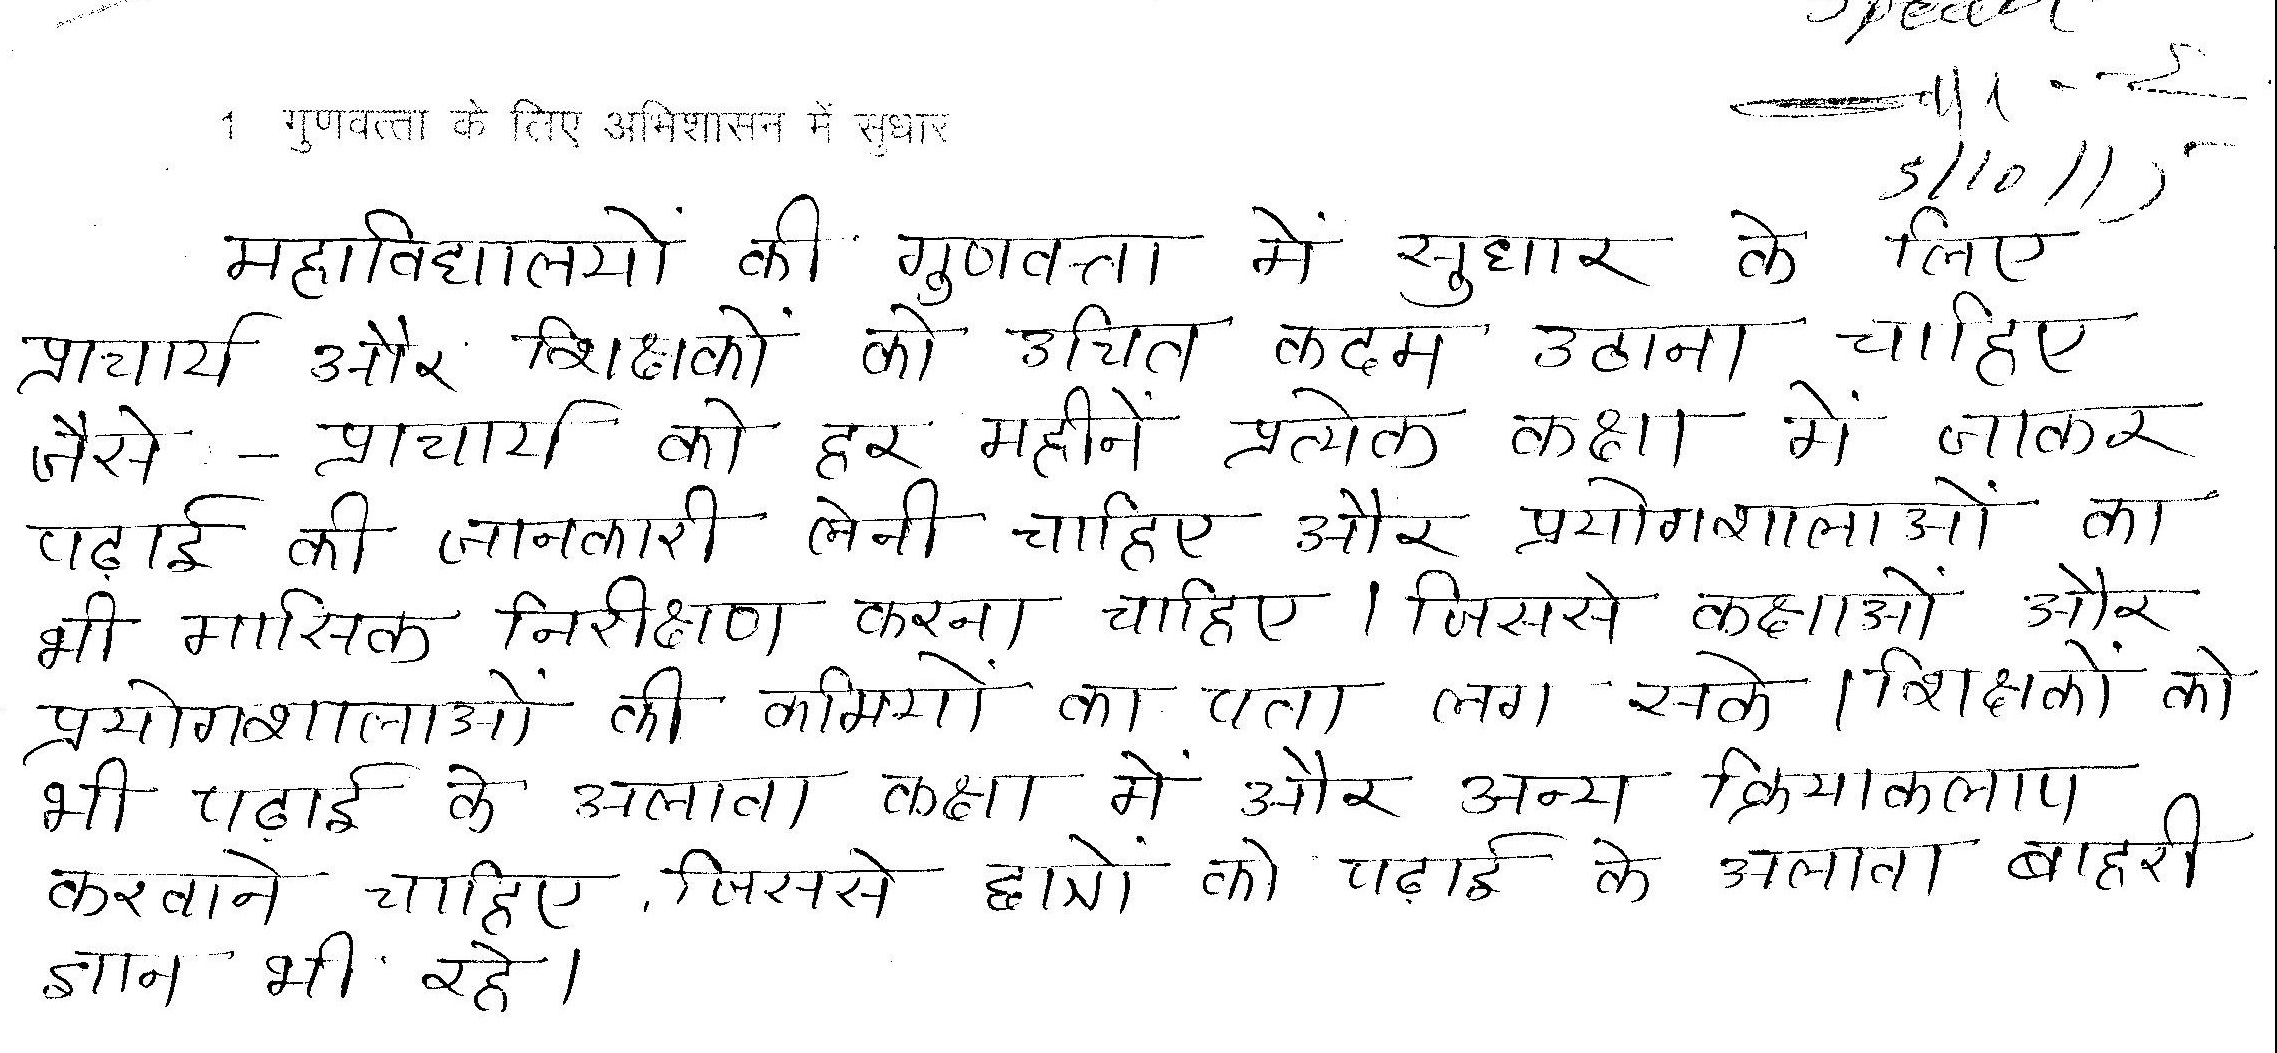 1 गुणवत्ता के लिए अभिशासन में सुधार
5/10/15
महाविद्यालयों की गुणवत्ता में सुधार के लिए
प्राचार्य और शिक्षकों को उचित कदम उठाना चाहिए
जैसे - प्राचार्य को हर महीनें प्रत्येक कक्षा में जाकर
पढ़ाई की जानकारी लेनी चाहिए और प्रयोगशालाओं का
भी मासिक निरीक्षण करना चाहिए । जिससे कक्षाओं और
प्रयोगशालाओं की कमियों का पता लग सके । शिक्षकों को
भी पढ़ाई के अलावा कक्षा में और अन्य क्रियाकलाप
करवाने चाहिए . जिससे छात्रों को पढ़ाई के अलावा बाहरी
ज्ञान भी रहे।